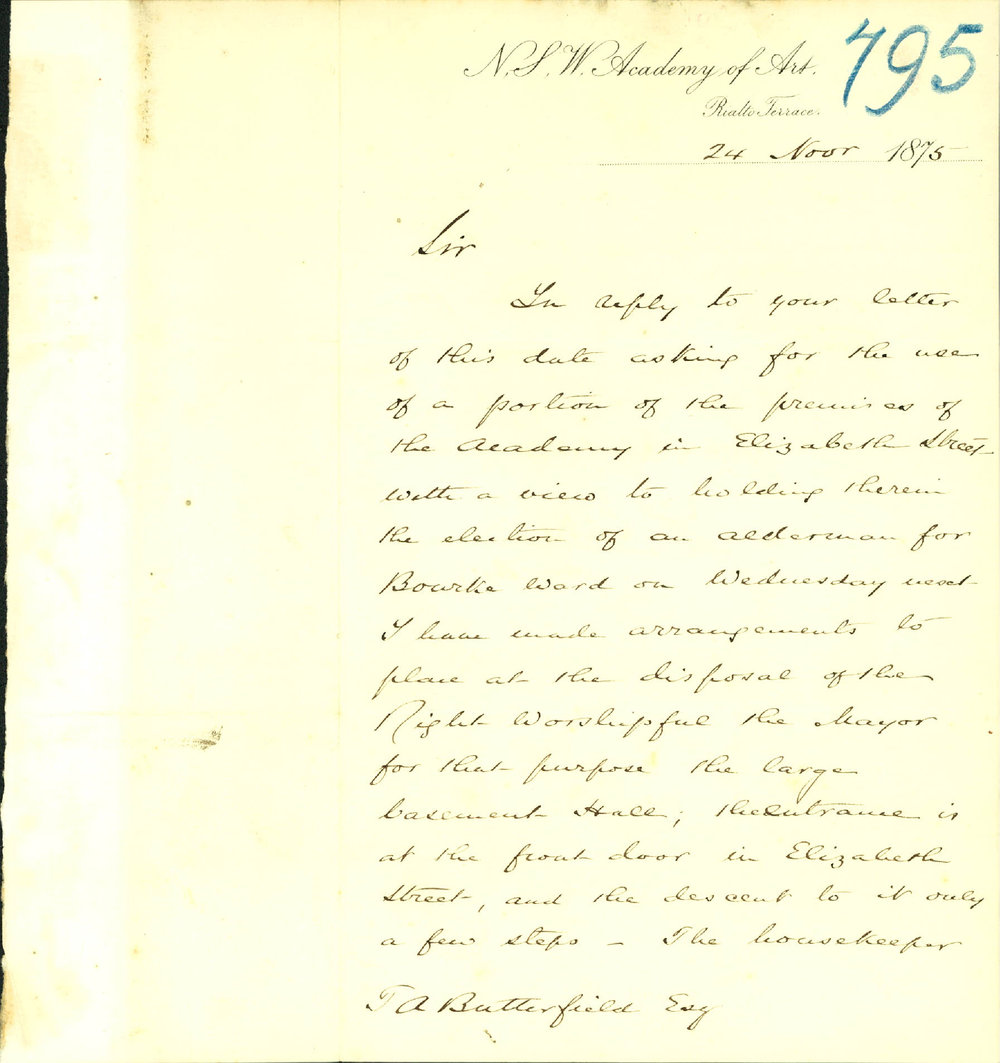 N.S.W. Academy of Art.
795
Rialto Terrace.
24 Novr 1875
Sir
In reply to your letter
of this date asking for the use
of a portion of the premises of
the Academy in Elizabeth Street
with a view to holding therein
the election of an alderman for
Bourke Ward on Wednesday next
I have made arrangements to
place at the disposal of the
Right Worshipful the Mayor
for that purpose the large
basement Hall; the entrance is
at the front door in Elizabeth
Street, and the descent to it only
a few steps – The housekeeper
T A Butterfield Esq